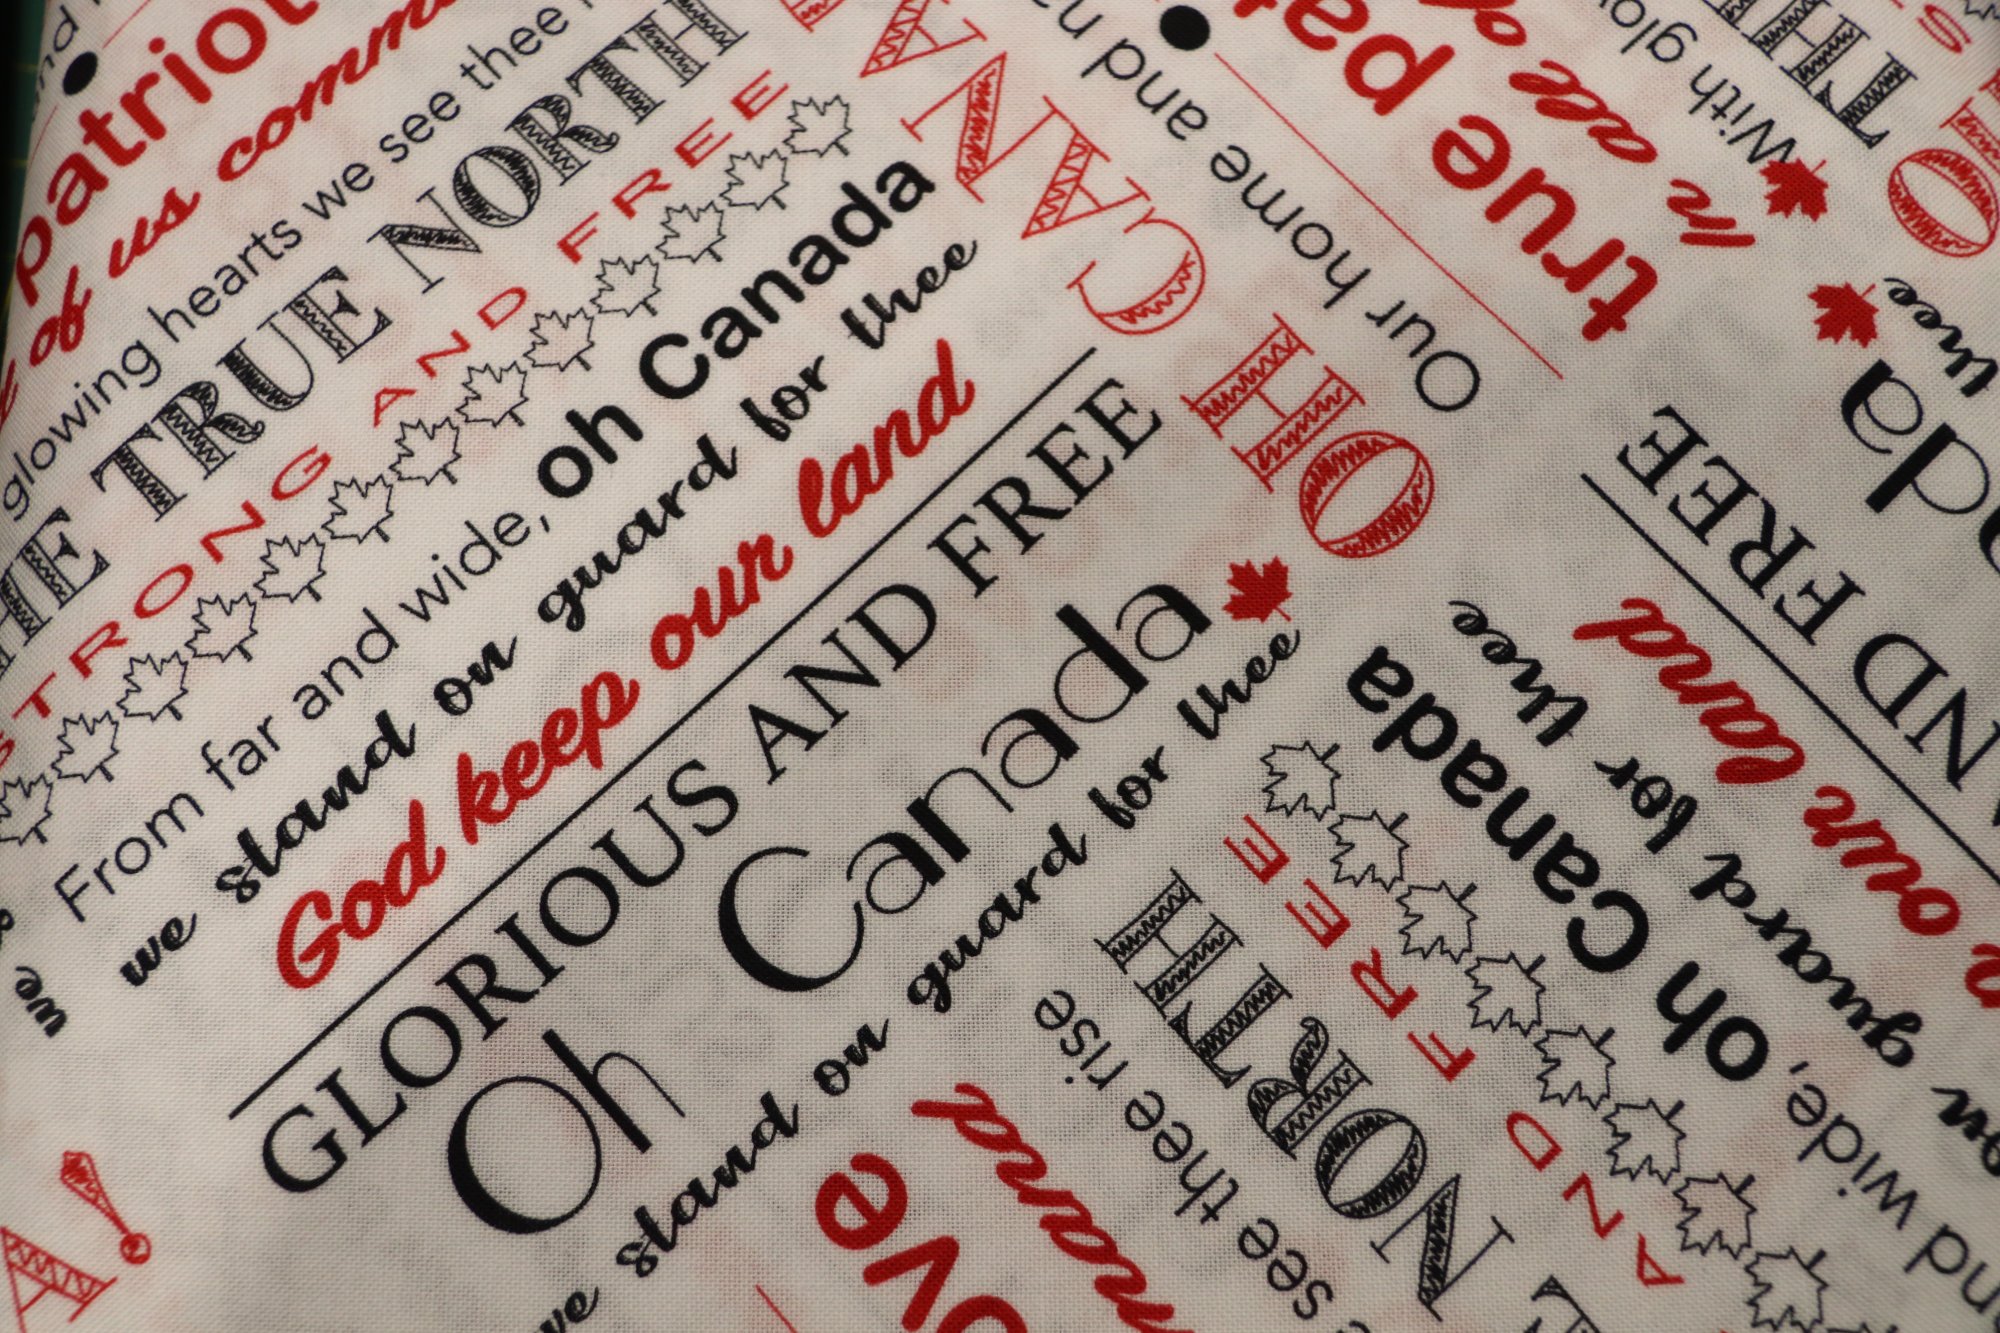 patriot
of us comm
glowing hearts we see thee
THE TRUE NORTH
STRONG AND FREE
From far and wide, oh Canada
we stand on guard for thee
God keep our land
GLORIOUS AND FREE
Oh Canada
we stand on guard for thee
OH CANA
Our home and n
true pat
In all of
With glo
TH
O
thee
da
ND FREE
our land
on guard for thee
nd wide, oh Canada
AND FREE
NORTH
see thee rise
mand
ove
we
A!